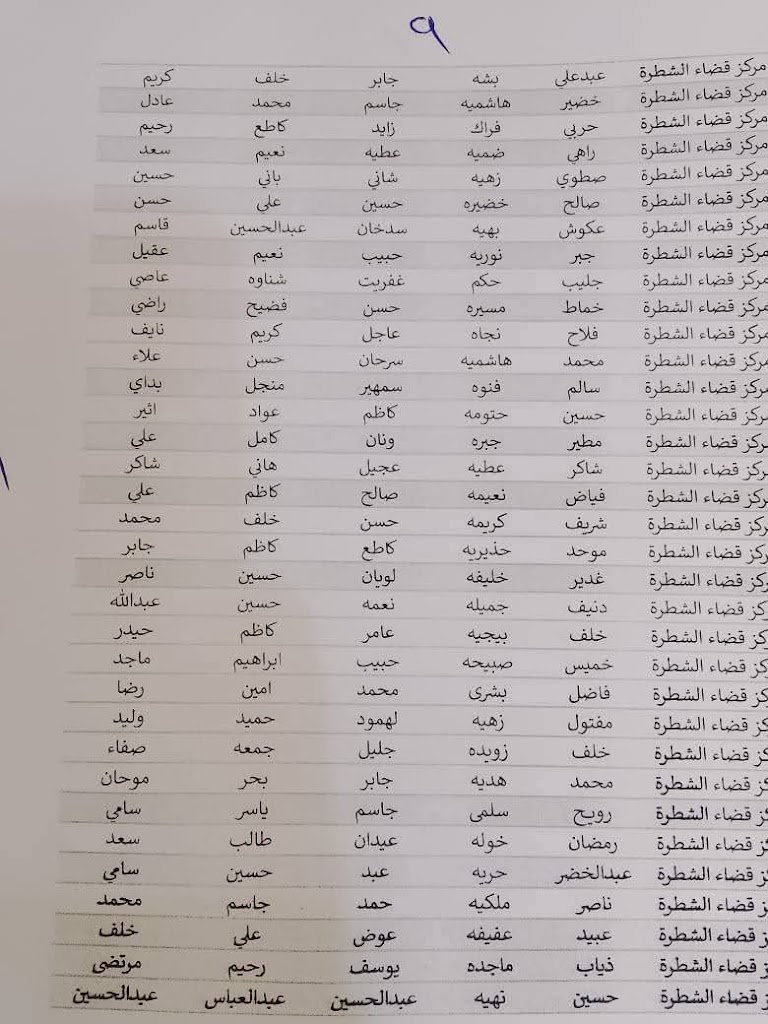 ٩
مركز قضاء الشطرة عبدعلي بشه جابر خلف كريم
مركز قضاء الشطرة خضير هاشميه جاسم محمد عادل
مركز قضاء الشطرة حربي فراك زايد كاطع رحيم
مركز قضاء الشطرة راهي ضميه عطيه نعيم سعد
مركز قضاء الشطرة صطوي زهيه شاني باني حسين
مركز قضاء الشطرة صالح خضيره حسين علي حسن
مركز قضاء الشطرة عكوش بهيه سدخان عبدالحسين قاسم
مركز قضاء الشطرة جبر نوريه حبيب نعيم عقيل
مركز قضاء الشطرة جليب حكم غفريت شناوه عاصي
مركز قضاء الشطرة خماط مسيره حسن فضيح راضي
مركز قضاء الشطرة فلاح نجاه عاجل كريم نايف
مركز قضاء الشطرة محمد هاشميه سرحان حسن علاء
مركز قضاء الشطرة سالم فنوه سمهير منجل بداي
مركز قضاء الشطرة حسين حتومه كاظم عواد اثير
مركز قضاء الشطرة مطير جبره ونان كامل علي
مركز قضاء الشطرة شاكر عطيه عجيل هاني شاكر
مركز قضاء الشطرة فياض نعيمه صالح كاظم علي
مركز قضاء الشطرة شريف كريمه حسن خلف محمد
ركز قضاء الشطرة موحد حذيريه كاطع كاظم جابر
ركز قضاء الشطرة غدير خليفه لويان حسين ناصر
ركز قضاء الشطرة دنيف جميله نعمه حسين عبدالله
ركز قضاء الشطرة خلف بيجيه عامر كاظم حيدر
ركز قضاء الشطرة خميس صبيحه حبيب ابراهيم ماجد
كز قضاء الشطرة فاضل بشرى محمد امين رضا
كز قضاء الشطرة مفتول زهيه لهمود حميد وليد
كز قضاء الشطرة خلف زويده جليل جمعه صفاء
كز قضاء الشطرة محمد هديه جابر بحر موحان
كز قضاء الشطرة رويح سلمى جاسم ياسر سامي
كز قضاء الشطرة رمضان خوله عيدان طالب سعد
كز قضاء الشطرة عبدالخضر حربه عبد حسين سامي
ز قضاء الشطرة ناصر ملكيه حمد جاسم محمد
ز قضاء الشطرة عبيد عفيفه عوض علي خلف
ز قضاء الشطرة ذياب ماجده يوسف رحيم مرتضى
ز قضاء الشطرة حسين نهيه عبدالحسين عبدالعباس عبدالحسين